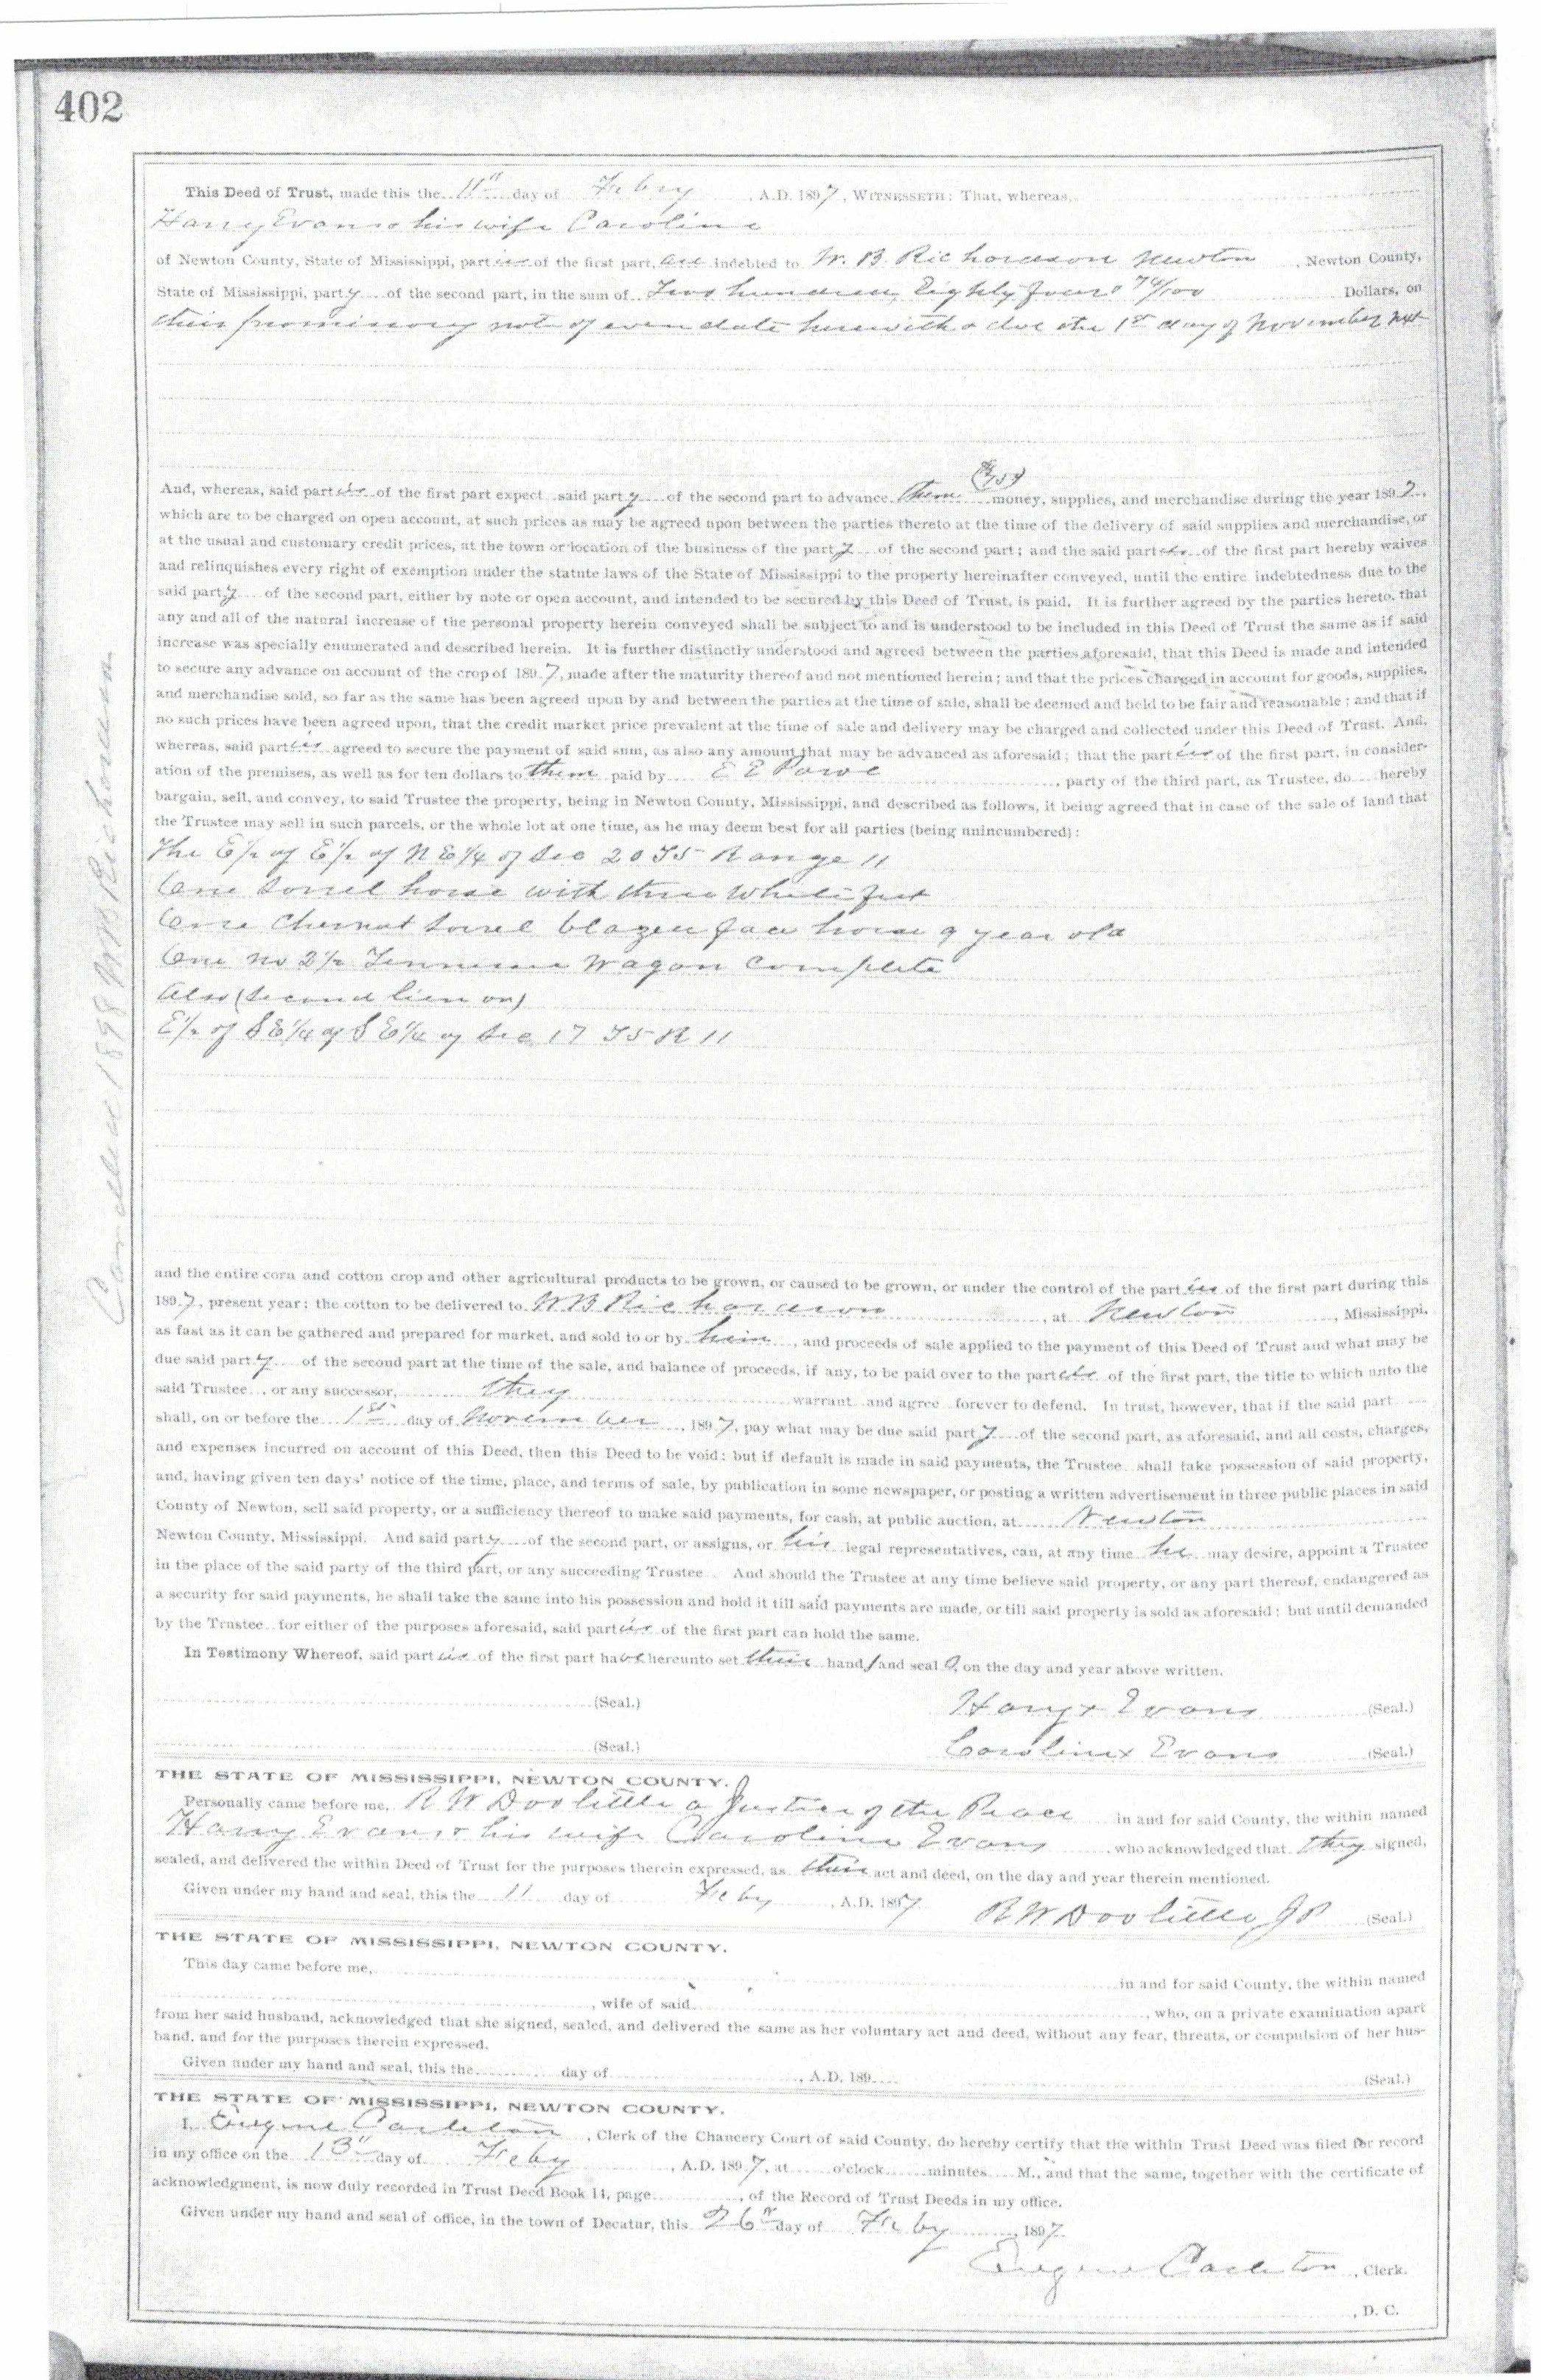 402
This Deed of Trust, made this the 11" day of Febry A.D. 1897, WITNESSETH: That, whereas,
Harry Evans & his wife Caroline
of Newton County, State of Mississippi, parties of the first part, are indebted to W. B. Richardson Newton, Newton County,
State of Mississippi, party of the second part, in the sum of Two hundred, Eighty four & 74/100 Dollars, on
their promissory note of even date herewith & due the 1st day of November next
And, whereas, said parties of the first part expect said party of the second part to advance them money, supplies, and merchandise during the year 1897,
which are to be charged on open account, at such prices as may be agreed upon between the parties thereto at the time of the delivery of said supplies and merchandise, or
at the usual and customary credit prices, at the town or location of the business of the party of the second part; and the said parties of the first part hereby waives
and relinquishes every right of exemption under the statute laws of the State of Mississippi to the property hereinafter conveyed, until the entire indebtedness due to the
said party of the second part, either by note or open account, and intended to be secured by this Deed of Trust, is paid. It is further agreed by the parties hereto, that
any and all of the natural increase of the personal property herein conveyed shall be subject to and is understood to be included in this Deed of Trust the same as if said
increase was specially enumerated and described herein. It is further distinctly understood and agreed between the parties aforesaid, that this Deed is made and intended
to secure any advance on account of the crop of 1897, made after the maturity thereof and not mentioned herein; and that the prices charged in account for goods, supplies,
and merchandise sold, so far as the same has been agreed upon by and between the parties at the time of sale, shall be deemed and held to be fair and reasonable; and that if
no such prices have been agreed upon, that the credit market price prevalent at the time of sale and delivery may be charged and collected under this Deed of Trust. And,
whereas, said parties agreed to secure the payment of said sum, as also any amount that may be advanced as aforesaid; that the parties of the first part, in consider-
ation of the premises, as well as for ten dollars to them paid by E E Powe, party of the third part, as Trustee, do hereby
bargain, sell, and convey, to said Trustee the property, being in Newton County, Mississippi, and described as follows, it being agreed that in case of the sale of land that
the Trustee may sell in such parcels, or the whole lot at one time, as he may deem best for all parties (being unincumbered):
The E½ of E½ of N E¼ of Sec 20 T5 Range 11
One sorrel horse with three white feet
One Chesnut sorrel blazed face horse 9 year old
One No 2½ Tennessee Wagon Complete
Also (second lien on)
E½ of S E¼ of S E¼ of Sec 17 T5 R 11
Cancelled 1898 WB Richardson
and the entire corn and cotton crop and other agricultural products to be grown, or caused to be grown, or under the control of the parties of the first part during this
1897, present year: the cotton to be delivered to W B Richardson, at Newton, Mississippi,
as fast as it can be gathered and prepared for market, and sold to or by him, and proceeds of sale applied to the payment of this Deed of Trust and what may be
due said party of the second part at the time of the sale, and balance of proceeds, if any, to be paid over to the parties of the first part, the title to which unto the
said Trustee, or any successor, they warrant and agree forever to defend. In trust, however, that if the said part
shall, on or before the 1st day of November, 1897, pay what may be due said party of the second part, as aforesaid, and all costs, charges,
and expenses incurred on account of this Deed, then this Deed to be void: but if default is made in said payments, the Trustee shall take possession of said property,
and, having given ten days' notice of the time, place, and terms of sale, by publication in some newspaper, or posting a written advertisement in three public places in said
County of Newton, sell said property, or a sufficiency thereof to make said payments, for cash, at public auction, at Newton
Newton County, Mississippi. And said party of the second part, or assigns, or his legal representatives, can, at any time he may desire, appoint a Trustee
in the place of the said party of the third part, or any succeeding Trustee. And should the Trustee at any time believe said property, or any part thereof, endangered as
a security for said payments, he shall take the same into his possession and hold it till said payments are made, or till said property is sold as aforesaid; but until demanded
by the Trustee for either of the purposes aforesaid, said parties of the first part can hold the same.
In Testimony Whereof, said parties of the first part have hereunto set their hands and seals, on the day and year above written.
(Seal.) Harry x Evans (Seal.)
(Seal.) Caroline x Evans (Seal.)
THE STATE OF MISSISSIPPI, NEWTON COUNTY.
Personally came before me, R W Doolittle a Justice of the Peace in and for said County, the within named
Harry Evans & his wife Caroline Evans, who acknowledged that they signed,
sealed, and delivered the within Deed of Trust for the purposes therein expressed, as their act and deed, on the day and year therein mentioned.
Given under my hand and seal, this the 11 day of Feby, A.D. 1897 R W Doolittle J P (Seal.)
THE STATE OF MISSISSIPPI, NEWTON COUNTY.
This day came before me, in and for said County, the within named
, wife of said , who, on a private examination apart
from her said husband, acknowledged that she signed, sealed, and delivered the same as her voluntary act and deed, without any fear, threats, or compulsion of her hus-
band, and for the purposes therein expressed.
Given under my hand and seal, this the day of , A.D. 189 (Seal.)
THE STATE OF MISSISSIPPI, NEWTON COUNTY.
I, Eugene Carleton, Clerk of the Chancery Court of said County, do hereby certify that the within Trust Deed was filed for record
in my office on the 13" day of Feby, A.D. 1897, at o'clock minutes M., and that the same, together with the certificate of
acknowledgment, is now duly recorded in Trust Deed Book 14, page , of the Record of Trust Deeds in my office.
Given under my hand and seal of office, in the town of Decatur, this 26" day of Feby, 1897
Eugene Carleton, Clerk.
, D. C.